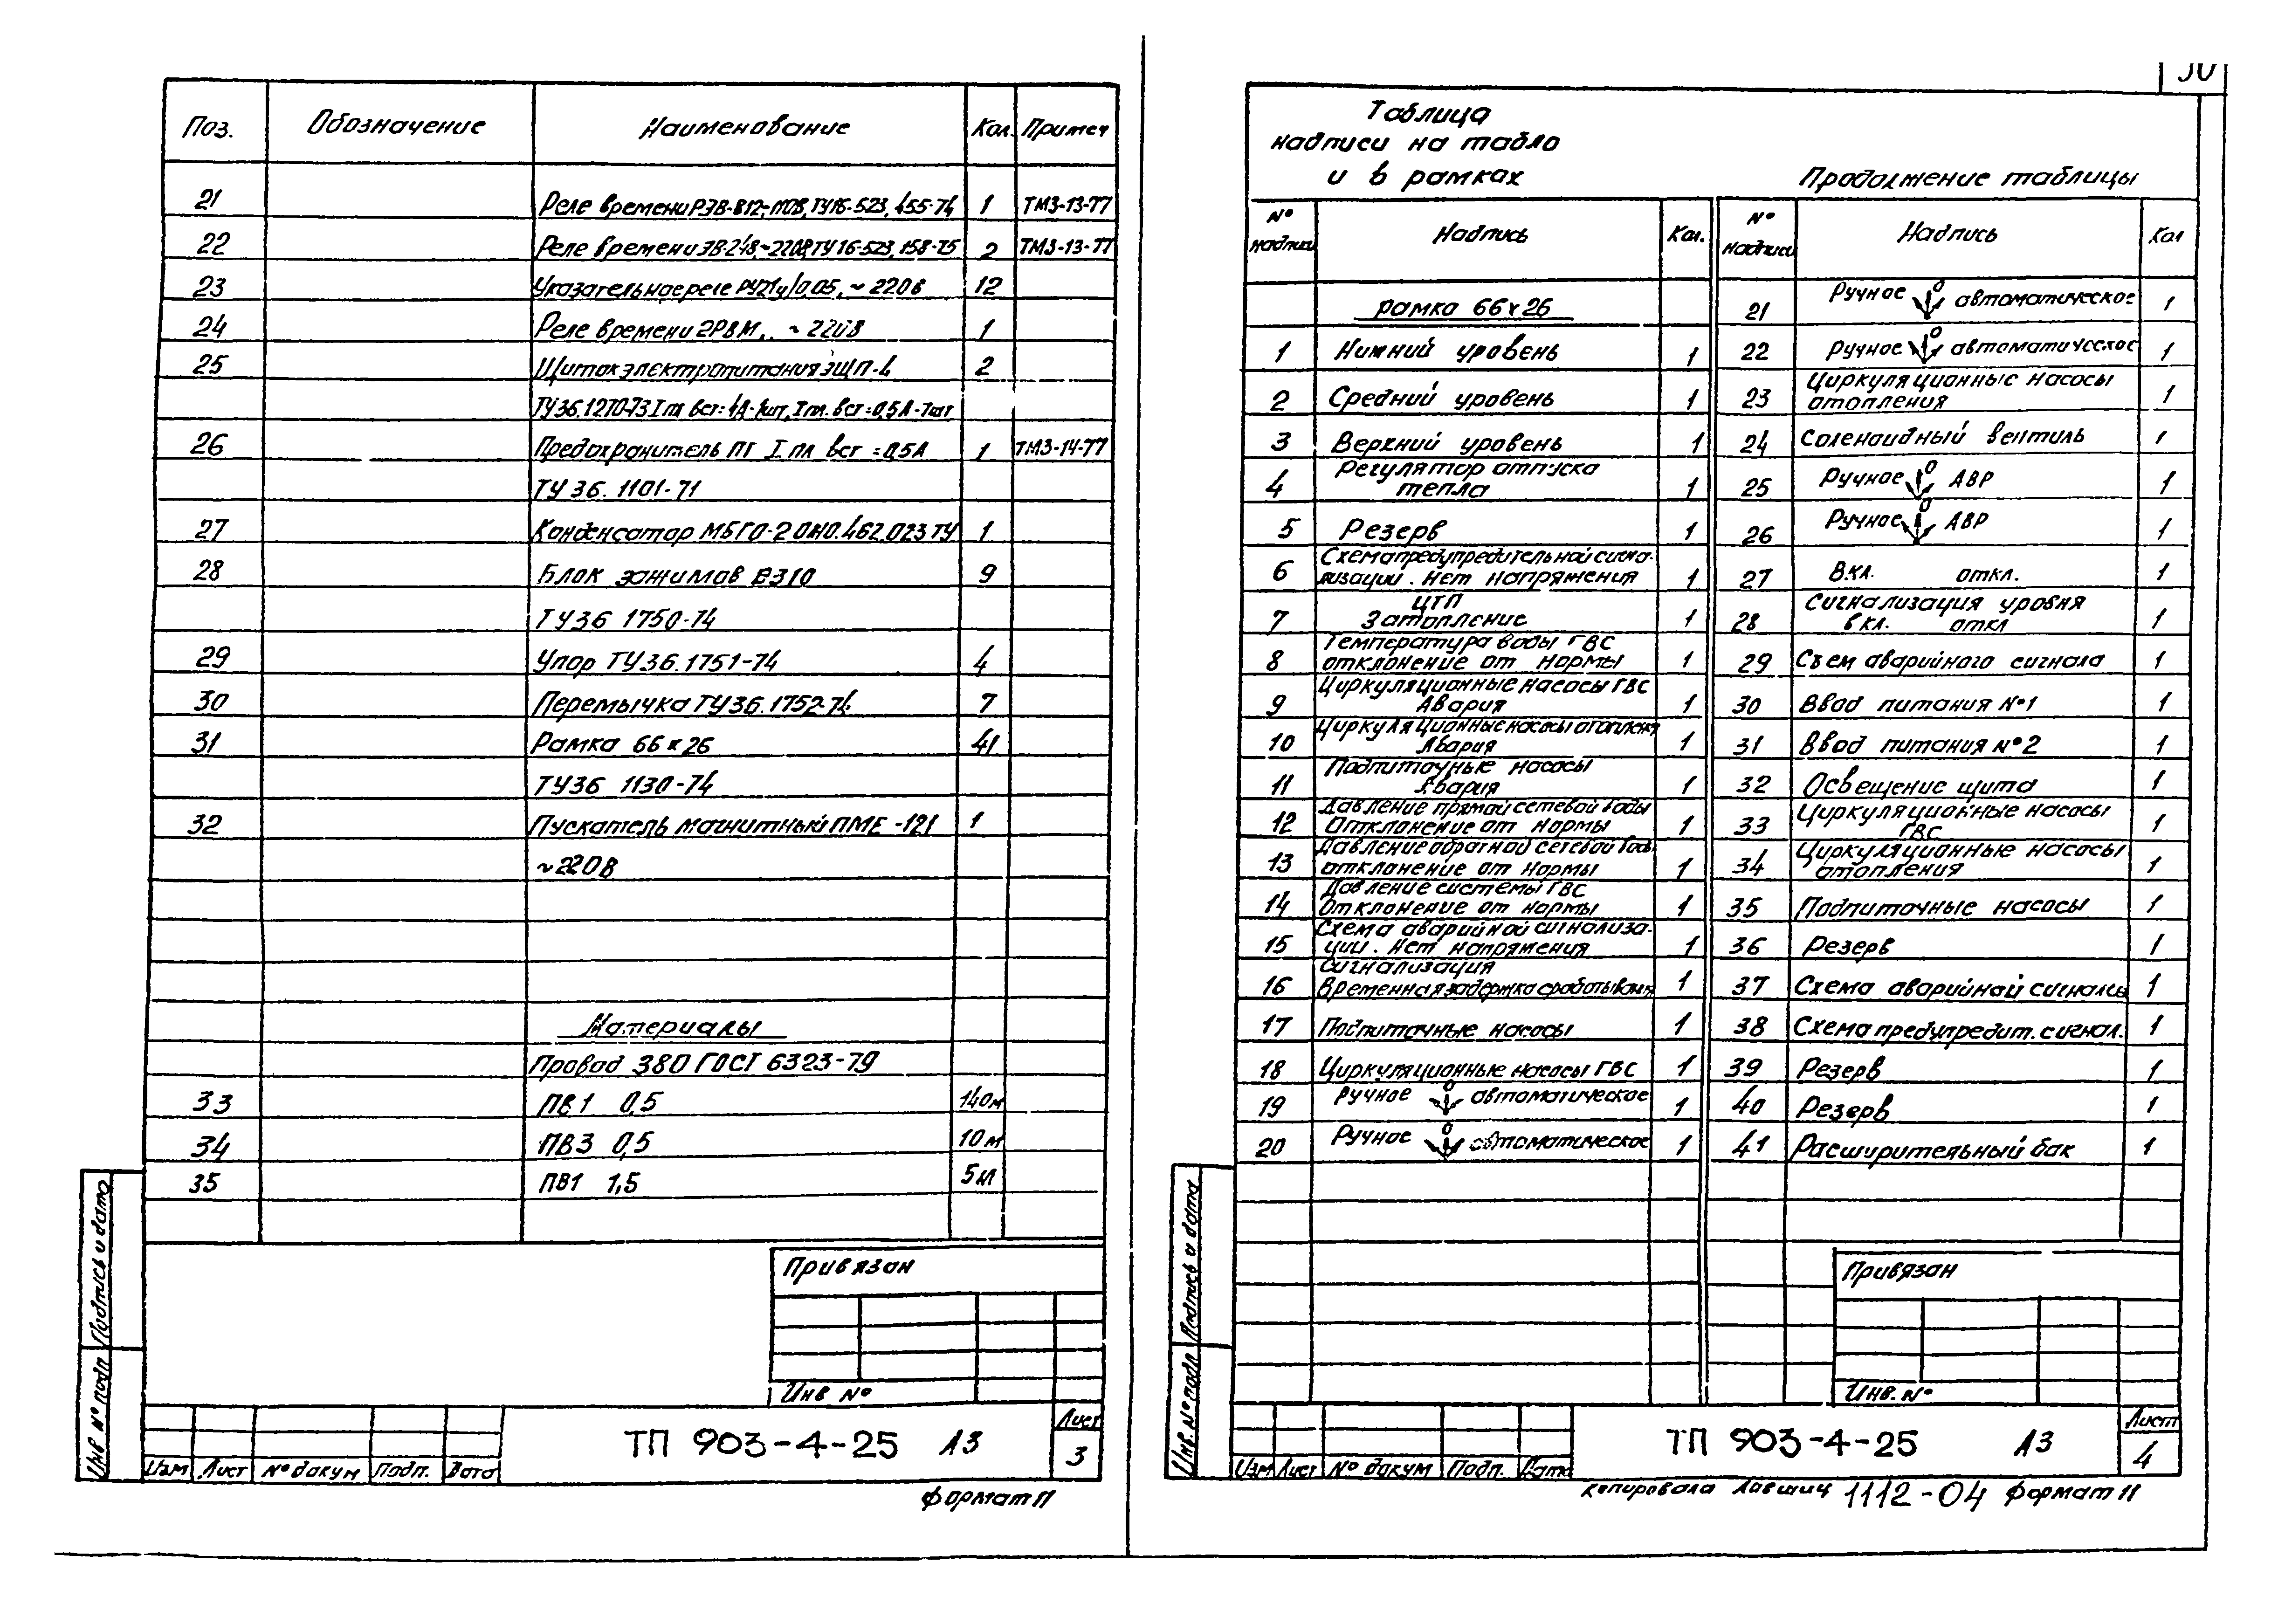 Поз. Обозначение Наименование Кол. Примеч
21 Реле времени РЭВ-812, ТУ16-523.455-74 1 ТМ3-13-77
22 Реле времени ЭВ-248, ~220В, ТУ16-523.158-75 2 ТМ3-13-77
23 Указательное реле РУ21у/0,05, ~220В 12
24 Реле времени 2РВМ, ~220В 1
25 Щиток электропитания ЭЩП-4 2
ТУ36.1270-73 I пл вст=4А-1шт, I пл. вст=0,5А-7шт
26 Предохранитель ПТ I пл вст =0,5А 1 ТМ3-14-77
ТУ 36. 1101-71
27 Конденсатор МБГО-2 ОЖО.462.023 ТУ 1
28 Блок зажимов БЗ10 9
ТУ36 1750-74
29 Упор ТУ36.1751-74 4
30 Перемычка ТУ36.1752-74 7
31 Рамка 66х26 41
ТУ36 1130-74
32 Пускатель магнитный ПМЕ-121 1
~220В
Материалы
Провод 380 ГОСТ 6323-79
33 ПВ1 0,5 140м
34 ПВ3 0,5 10м
35 ПВ1 1,5 5м
Привязан
Инв №
Изм Лист № докум Подп. Дата
ТП 903-4-25 А3
Лист
3
Формат 11
Инв № подл Подпись и дата
30
Таблица
надписи на табло
и в рамках
№ надписи Надпись Кол.
рамка 66х26
1 Нижний уровень 1
2 Средний уровень 1
3 Верхний уровень 1
4 Регулятор отпуска
тепла 1
5 Резерв 1
6 Схема предупредительной сигна-
лизации. Нет напряжения 1
7 ЦТП
Затопление 1
8 Температура воды ГВС
отклонение от нормы 1
9 Циркуляционные насосы ГВС
Авария 1
10 Циркуляционные насосы отоплен
Авария 1
11 Подпиточные насосы
Авария 1
12 Давление прямой сетевой воды
Отклонение от нормы 1
13 Давление обратной сетевой воды
отклонение от нормы 1
14 Давление системы ГВС
Отклонение от нормы 1
15 Схема аварийной сигнализа-
ции. Нет напряжения 1
16 Сигнализация
Временная задержка срабатывания 1
17 Подпиточные насосы 1
18 Циркуляционные насосы ГВС 1
19 Ручное 0 автоматическое 1
20 Ручное 0 автоматическое 1
Продолжение таблицы
№ надписи Надпись Кол
21 Ручное 0 автоматическое 1
22 Ручное 0 автоматическое 1
23 Циркуляционные насосы
отопления 1
24 Соленоидный вентиль 1
25 Ручное 0 АВР 1
26 Ручное 0 АВР 1
27 Вкл. откл. 1
28 Сигнализация уровня
вкл. откл 1
29 Съем аварийного сигнала 1
30 Ввод питания №1 1
31 Ввод питания №2 1
32 Освещение щита 1
33 Циркуляционные насосы
ГВС 1
34 Циркуляционные насосы
отопления 1
35 Подпиточные насосы 1
36 Резерв 1
37 Схема аварийной сигнализ 1
38 Схема предупредит. сигнал. 1
39 Резерв 1
40 Резерв 1
41 Расширительный бак 1
Привязан
Инв. №
Изм Лист № докум Подп. Дата
ТП 903-4-25 А3
Лист
4
Инв. № подл Подпись и дата
копировала Лавшич 1112-04 Формат 11